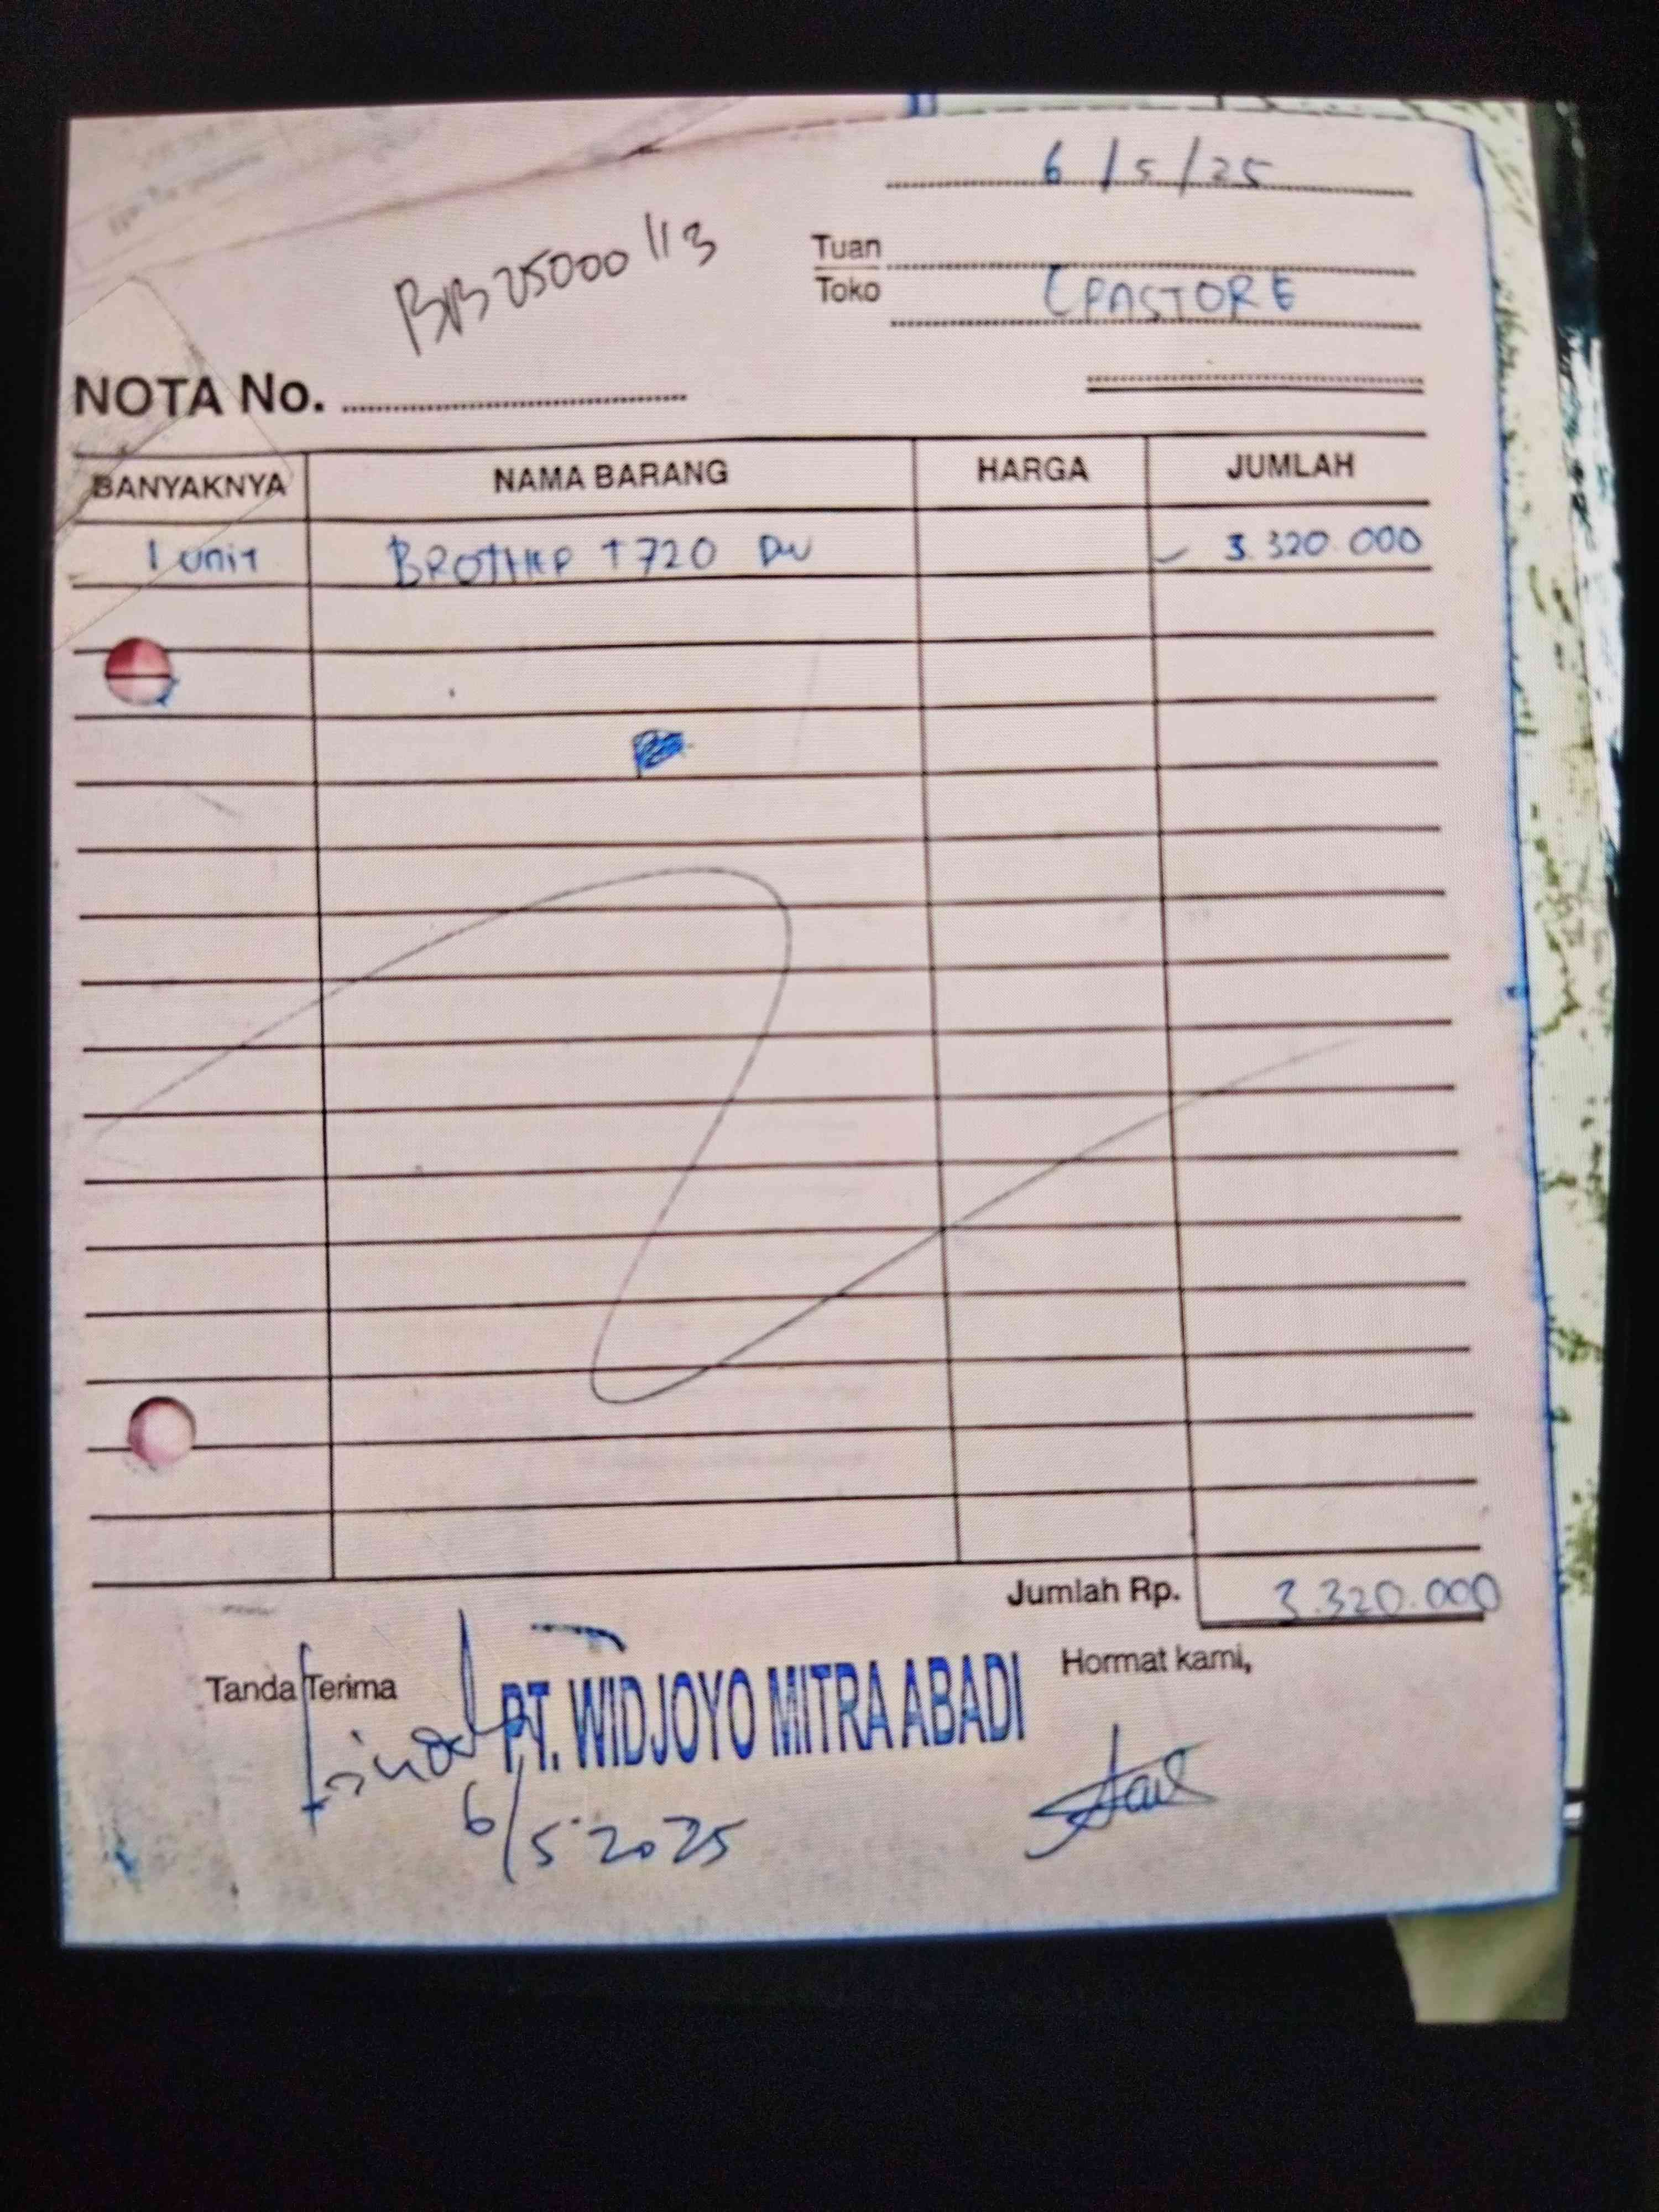 6/5/25
BB25000113
Tuan
Toko CPASTORE
NOTA No.
BANYAKNYA NAMA BARANG HARGA JUMLAH
1 unit BROTHER T720 DW 3.320.000
Jumlah Rp. 3.320.000
Tanda Terima Hormat kami,
PT. WIDJOYO MITRA ABADI
6/5 2025